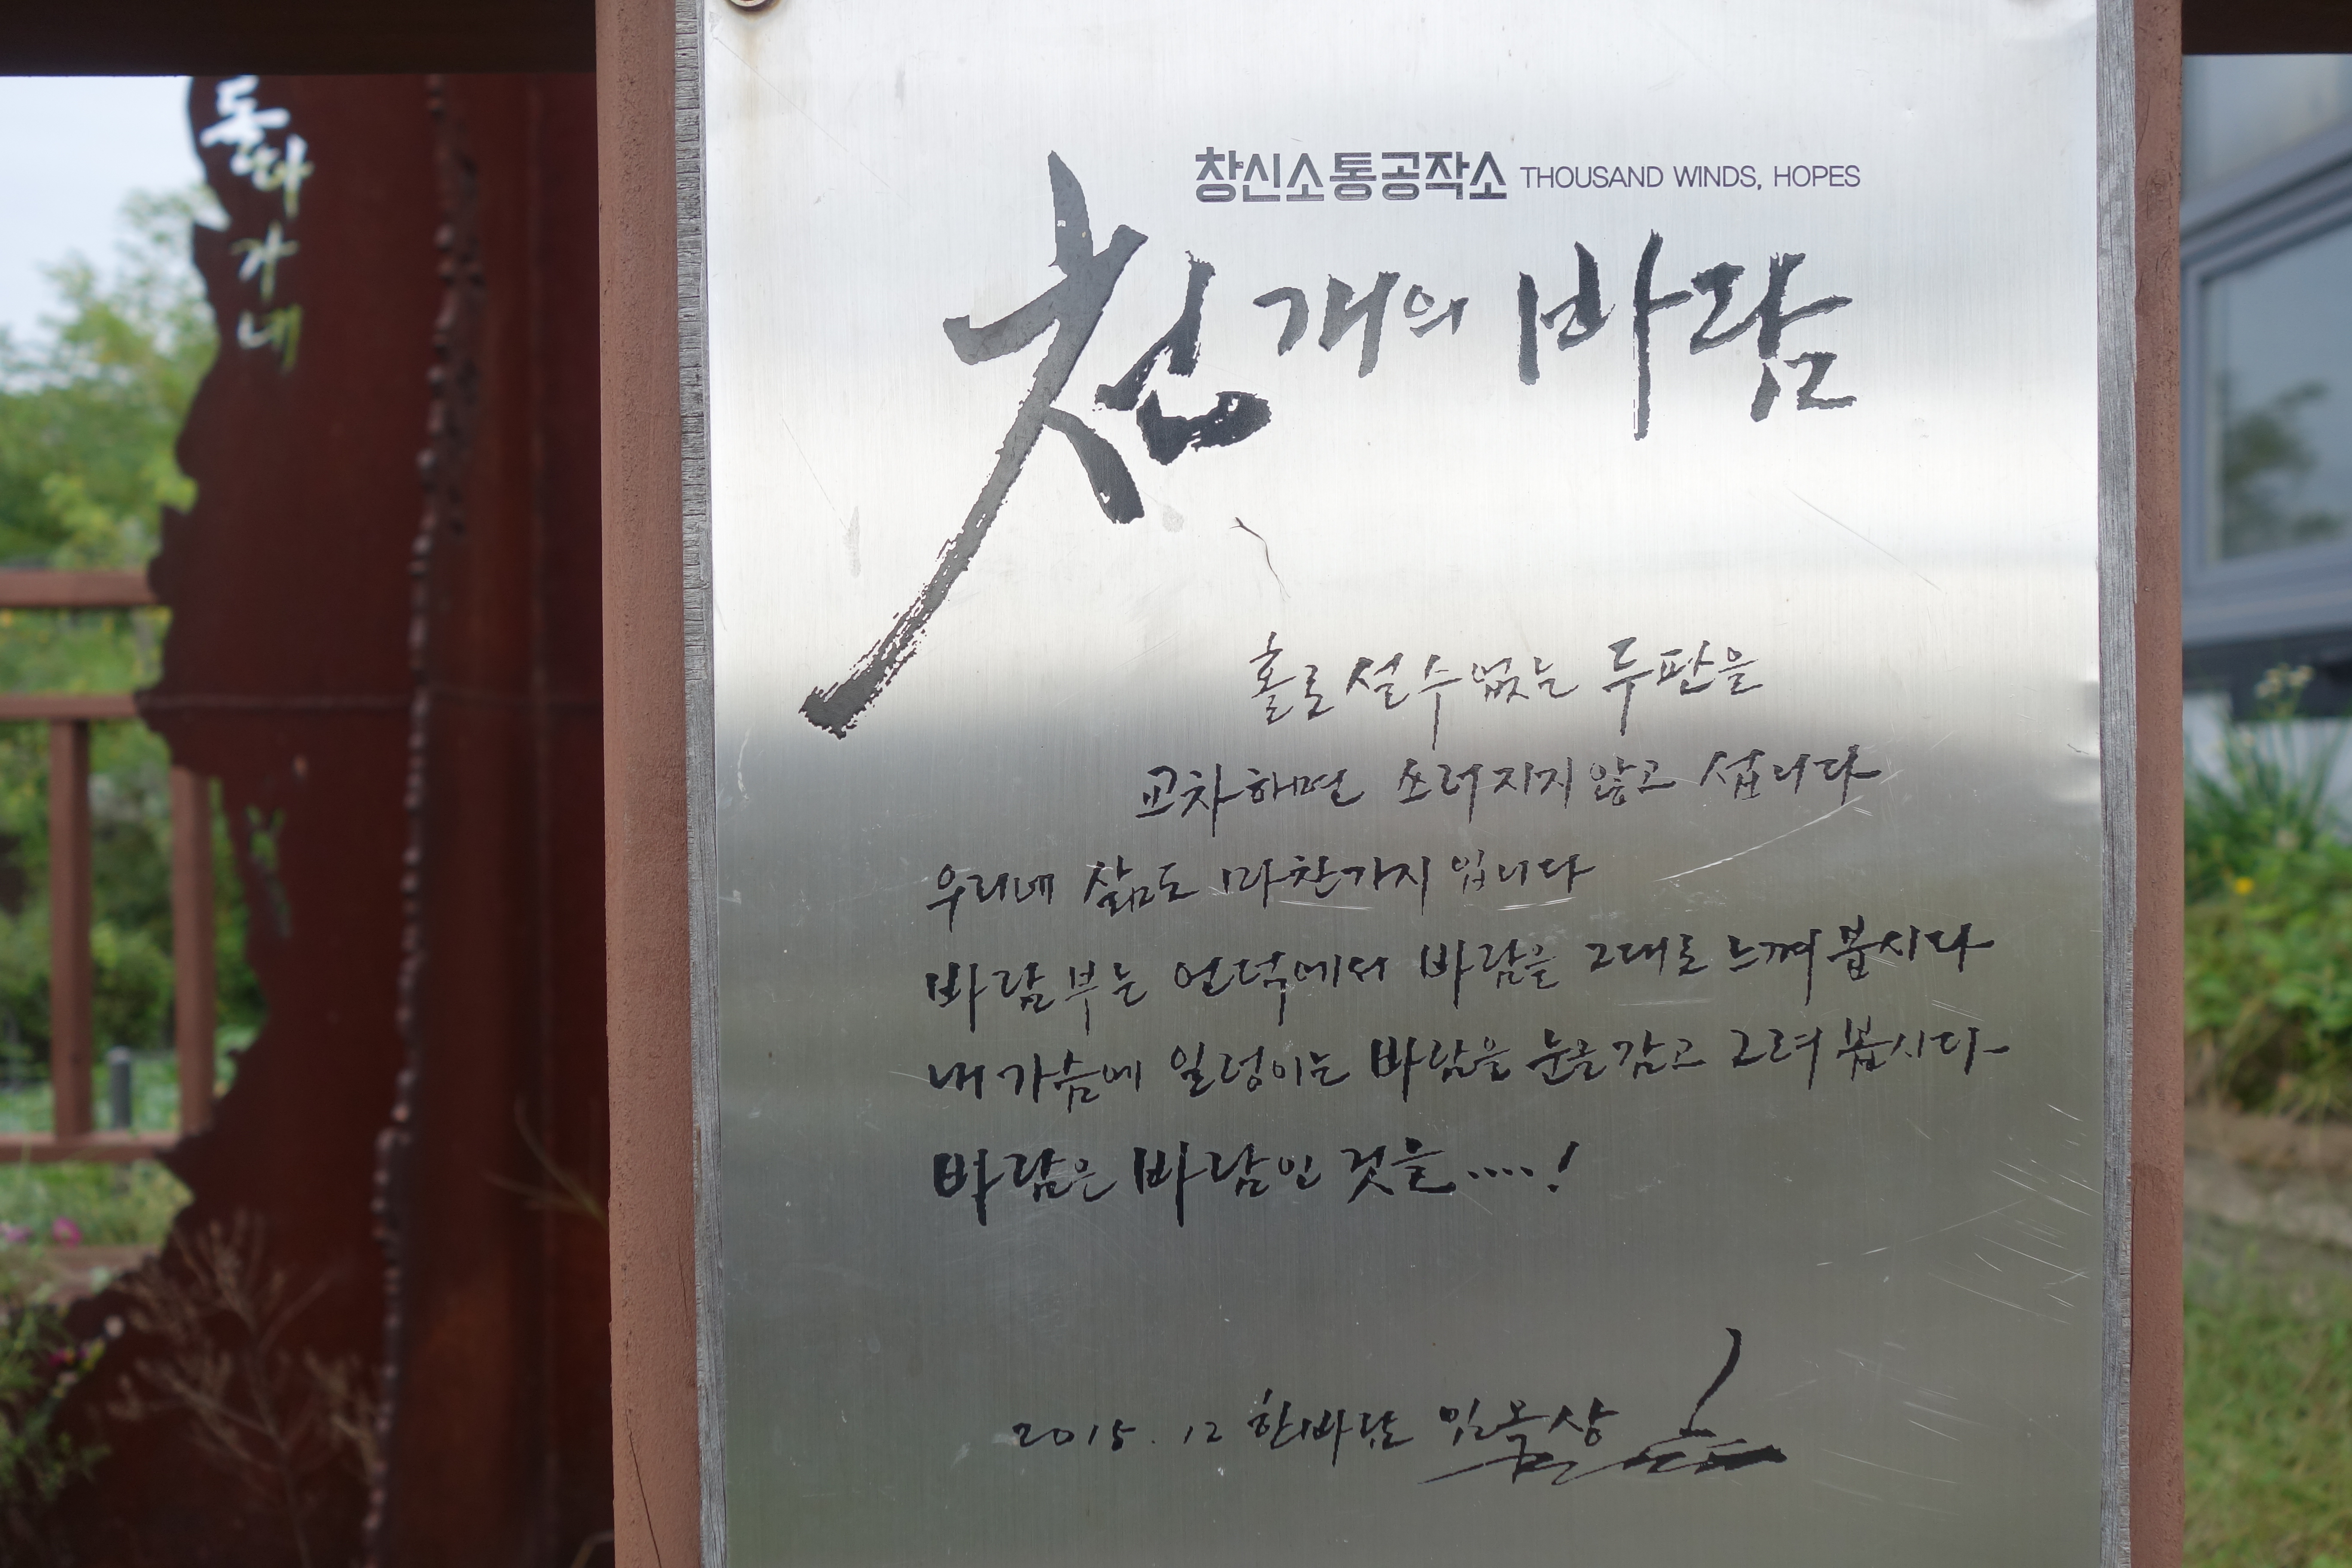 돌다
가
네
창신소통공작소 THOUSAND WINDS, HOPES
천개의 바람
홀로 설 수 없는 두 판을
교차하면 쓰러지지 않고 섭니다
우리네 삶도 마찬가지입니다
바람부는 언덕에서 바람을 그대로 느껴 봅시다
내 가슴에 일렁이는 바람을 눈을 감고 그려 봅시다
바람은 바람인 것을.....!
2015. 12 한바람 임옥상